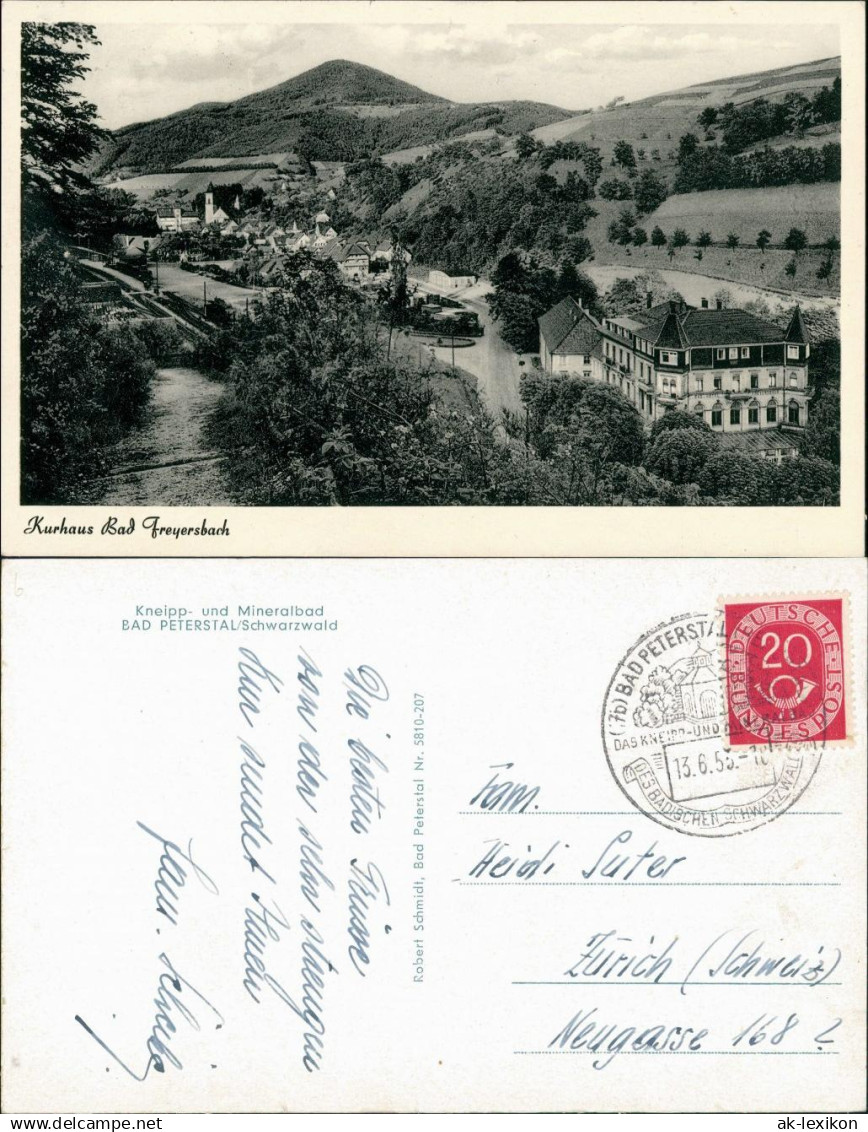 Kurhaus Bad Freyersbach
Kneipp- und Mineralbad
BAD PETERSTAL/Schwarzwald
Die besten Grüsse
von der sehr strengen
Kur sendet Euch
Fam.
Robert Schmidt, Bad Peterstal Nr. 5810-207
(17b) BAD PETERSTAL
DAS KNEIPP-UND
13.6.55.-18
DES BADISCHEN SCHWARZWALDES
DEUTSCHE
BUNDESPOST
20
Fam.
Heidi Suter
Zürich (Schweiz)
Neugasse 168
ak-ansichtskarten.de
ak-lexikon